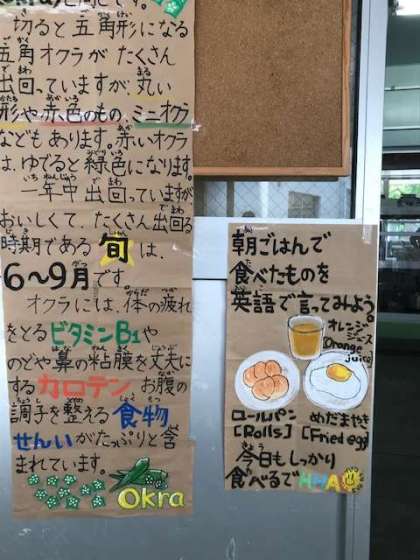 (Okra)と同じです。
切ると五角形になる
五角オクラがたくさん
出回っていますが、丸い
形や赤色のもの、ミニオクラ
などもあります。赤いオクラ
は、ゆでると緑色になります。
一年中出回っていますが
おいしくて、たくさん出回る
時期である旬は、
6〜9月です。
オクラには、体の疲れ
をとるビタミンB1や
のどや鼻の粘膜を丈夫に
するカロテン、お腹の
調子を整える食物
せんいがたっぷりと含
まれています。
Okra
朝ごはんで
食べたものを
英語で言ってみよう。
オレンジ
ジュース
[Orange
juice]
ロールパン めだまやき
[Rolls] [Fried egg]
今日もしっかり
食べるで